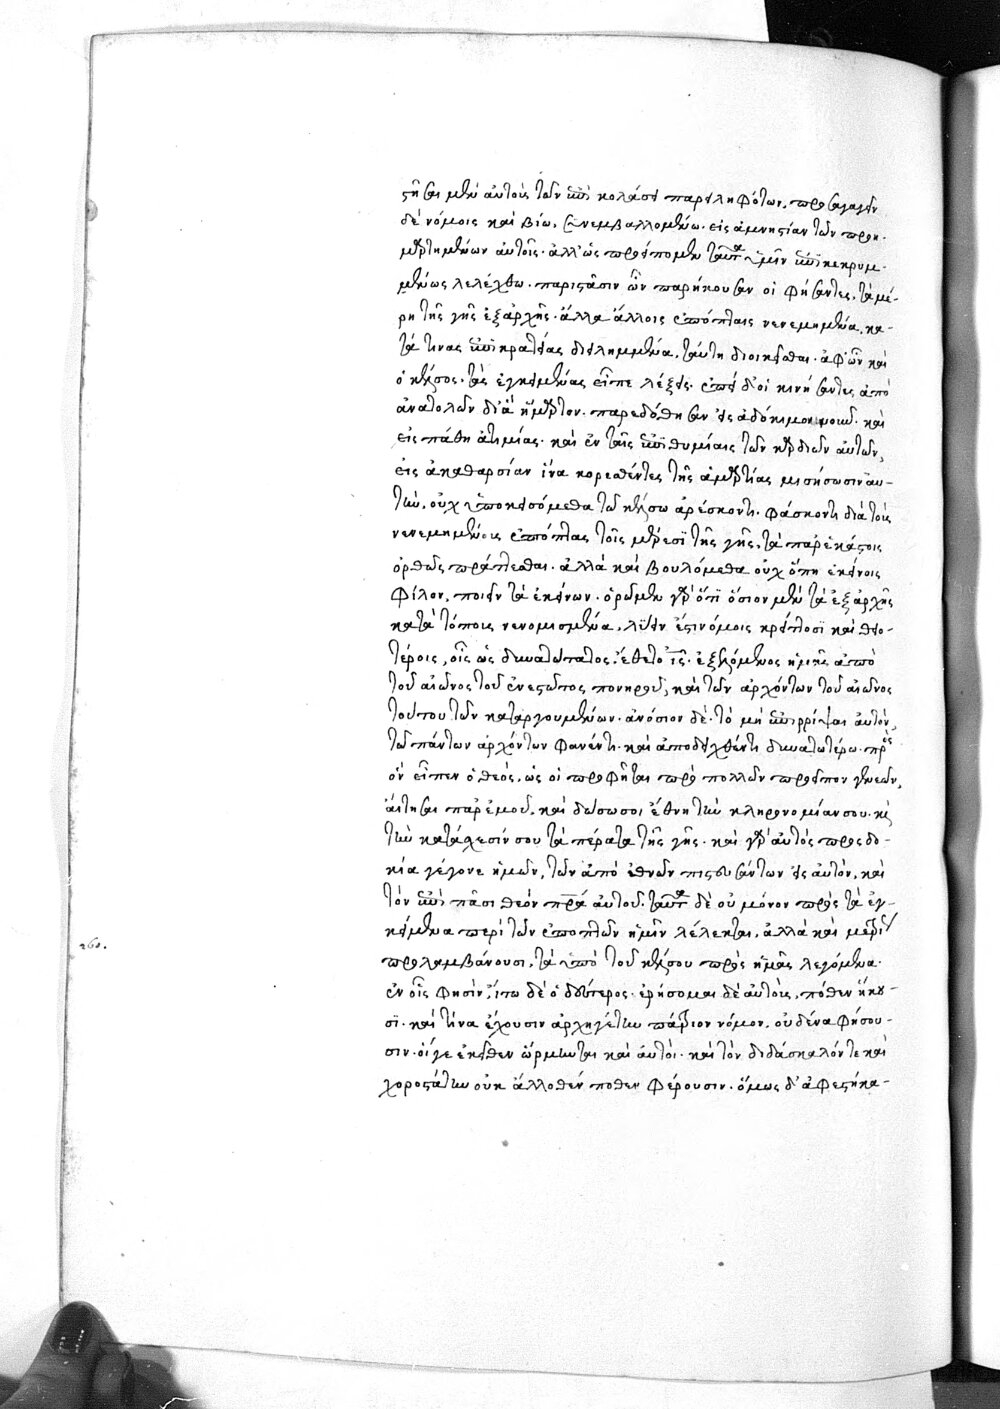 στῆσαι μὲν αὐτοὺς τῶν ἐπὶ κολάσει παρειληφότων, προσαγαγεῖν
δὲ νόμοις καὶ βίῳ, συνεμβαλλομένῳ εἰς ἀμνηστίαν τῶν προη-
μαρτημένων αὐτοῖς. ἀλλ' ὡς προείπομεν ταῦτα ἡμῖν ἐπικεκρυμ-
μένως λελέχθω. παριστᾶσιν ὧν παρήκουσαν οἱ φήσαντες, τὰ μέ-
ρη τῆς γῆς ἐξαρχῆς. ἄλλα ἄλλοις ἐπόπταις νενεμημένα, κα-
τά τινας ἐπικρατείας διειλημμένα, ταύτῃ διοικεῖσθαι. ἀφ' ὧν καὶ
ὁ κέλσος. τὰς ἐγκειμένας εἶπε λέξεις. ἐπεὶ δ' οἱ κινήσαντες ἀπὸ
ἀνατολῶν δι' ἃ ἥμαρτον. παρεδόθησαν εἰς ἀδόκιμον νοῦν. καὶ
εἰς πάθη ἀτιμίας. καὶ ἐν ταῖς ἐπιθυμίαις τῶν καρδιῶν αὐτῶν,
εἰς ἀκαθαρσίαν ἵνα κορεσθέντες τῆς ἁμαρτίας μισήσωσιν αὐ-
τήν, οὐχ ὑποκεισόμεθα τῷ κέλσῳ ἀρέσκοντι. φάσκοντι διὰ τοὺς
νενεμημένους ἐπόπτας τοῖς μέρεσι τῆς γῆς, τὰ παρ' ἑκάστοις
ὀρθῶς πράττεσθαι. ἀλλὰ καὶ βουλόμεθα οὐχ ὅπη ἐκείνοις
φίλον, ποιεῖν τὰ ἐκείνων. ὁρῶμεν γὰρ ὅτι ὅσιον μὲν τὰ ἐξ ἀρχῆς
κατὰ τόπους νενομισμένα, λύειν ἐστὶ νόμοις κρείττοσι καὶ θειο-
τέροις, οἷς ὡς δυνατώτατος, ἔθετο ις. ἐξελόμενος ἡμᾶς ἀπὸ
τοῦ αἰῶνος τοῦ ἐνεστῶτος πονηροῦ, καὶ τῶν ἀρχόντων τοῦ αἰῶνος
τούτου τῶν καταργουμένων. ἀνόσιον δὲ. τὸ μὴ ἐπιρρίψαι αὑτὸν,
τῷ πάντων ἀρχόντων φανέντι. καὶ ἀποδειχθέντι δυνατωτέρῳ. πρὸς
ὃν εἶπεν ὁ θεὸς, ὡς οἱ προφῆται πρὸ πολλῶν προεῖπον γενεῶν,
αἴτησαι παρ' ἐμοῦ, καὶ δώσω σοι ἔθνη τὴν κληρονομίαν σου. κὶ
τὴν κατάσχεσίν σου τὰ πέρατα τῆς γῆς. καὶ γὰρ αὐτὸς προσδο-
κία γέγονε ἡμῶν, τῶν ἀπὸ ἐθνῶν πιστευσάντων εἰς αὐτὸν, καὶ
τὸν ἐπὶ πᾶσι θεὸν πρα αὐτοῦ. ταῦτα δὲ οὐ μόνον πρὸς τὰ ἐγ-
κείμενα περὶ τῶν ἐποπτῶν ἡμῖν λέλεκται, ἀλλὰ καὶ μετρίως
προλαμβάνουσι, τὰ ὑπὸ τοῦ κέλσου πρὸς ἡμᾶς λεγόμενα.
ἐν οἷς φησὶν, ἴτω δὲ ὁ δεύτερος. ἐρήσομαι δὲ αὐτοὺς, πόθεν ἥκου-
σι. καὶ τίνα ἔχουσιν ἀρχηγέτην πάτριον νόμον, οὐδένα φήσου-
σιν. οἵ γε ἐκεῖθεν ὥρμηνται καὶ αὐτοί. καὶ τὸν διδάσκαλόν τε καὶ
χοροστάτην οὐκ ἄλλοθέν ποθεν φέρουσιν. ὅμως δ' ἀφεστήκα-
260.